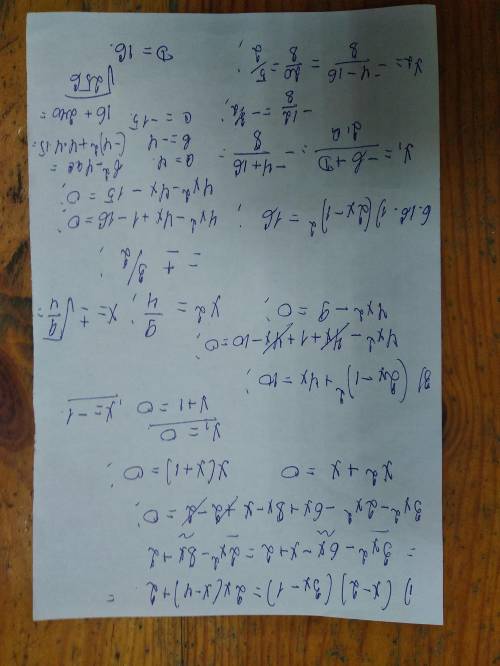 1) (x-2)(3x-1)=2x(x-4)+2 =
= 3x²-6x-x+2=2x²-8x+2
3x²-2x²-6x+8x-x+2-2=0;
x²+x=0 x(x+1)=0;
x₁=0
x+1=0 ; x=-1
3) (2x-1)²+4x=10
4x²-4x+1+4x-10=0;
4x²-9=0; x²=9/4; x=±√9/4=
=±3/2;
6.16. 1) (2x-1)²=16
4x²-4x+1-16=0;
4x²-4x-15=0;
a=4 b²-4ac=
b=-4 (-4)²+4.4.15=
c=-15. 16+240=
√256
x₁= -b+D/2.a = -4+16/8 =
-12/8=-3/2;
x₂= -4-16/8=20/8=5/2; D=16.